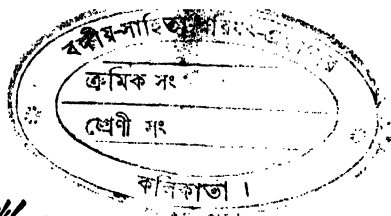 বঙ্গীয়-সাহিত্য-পরিষৎ-
ক্রমিক সং
শ্রেণী সং
কলিকাতা ।